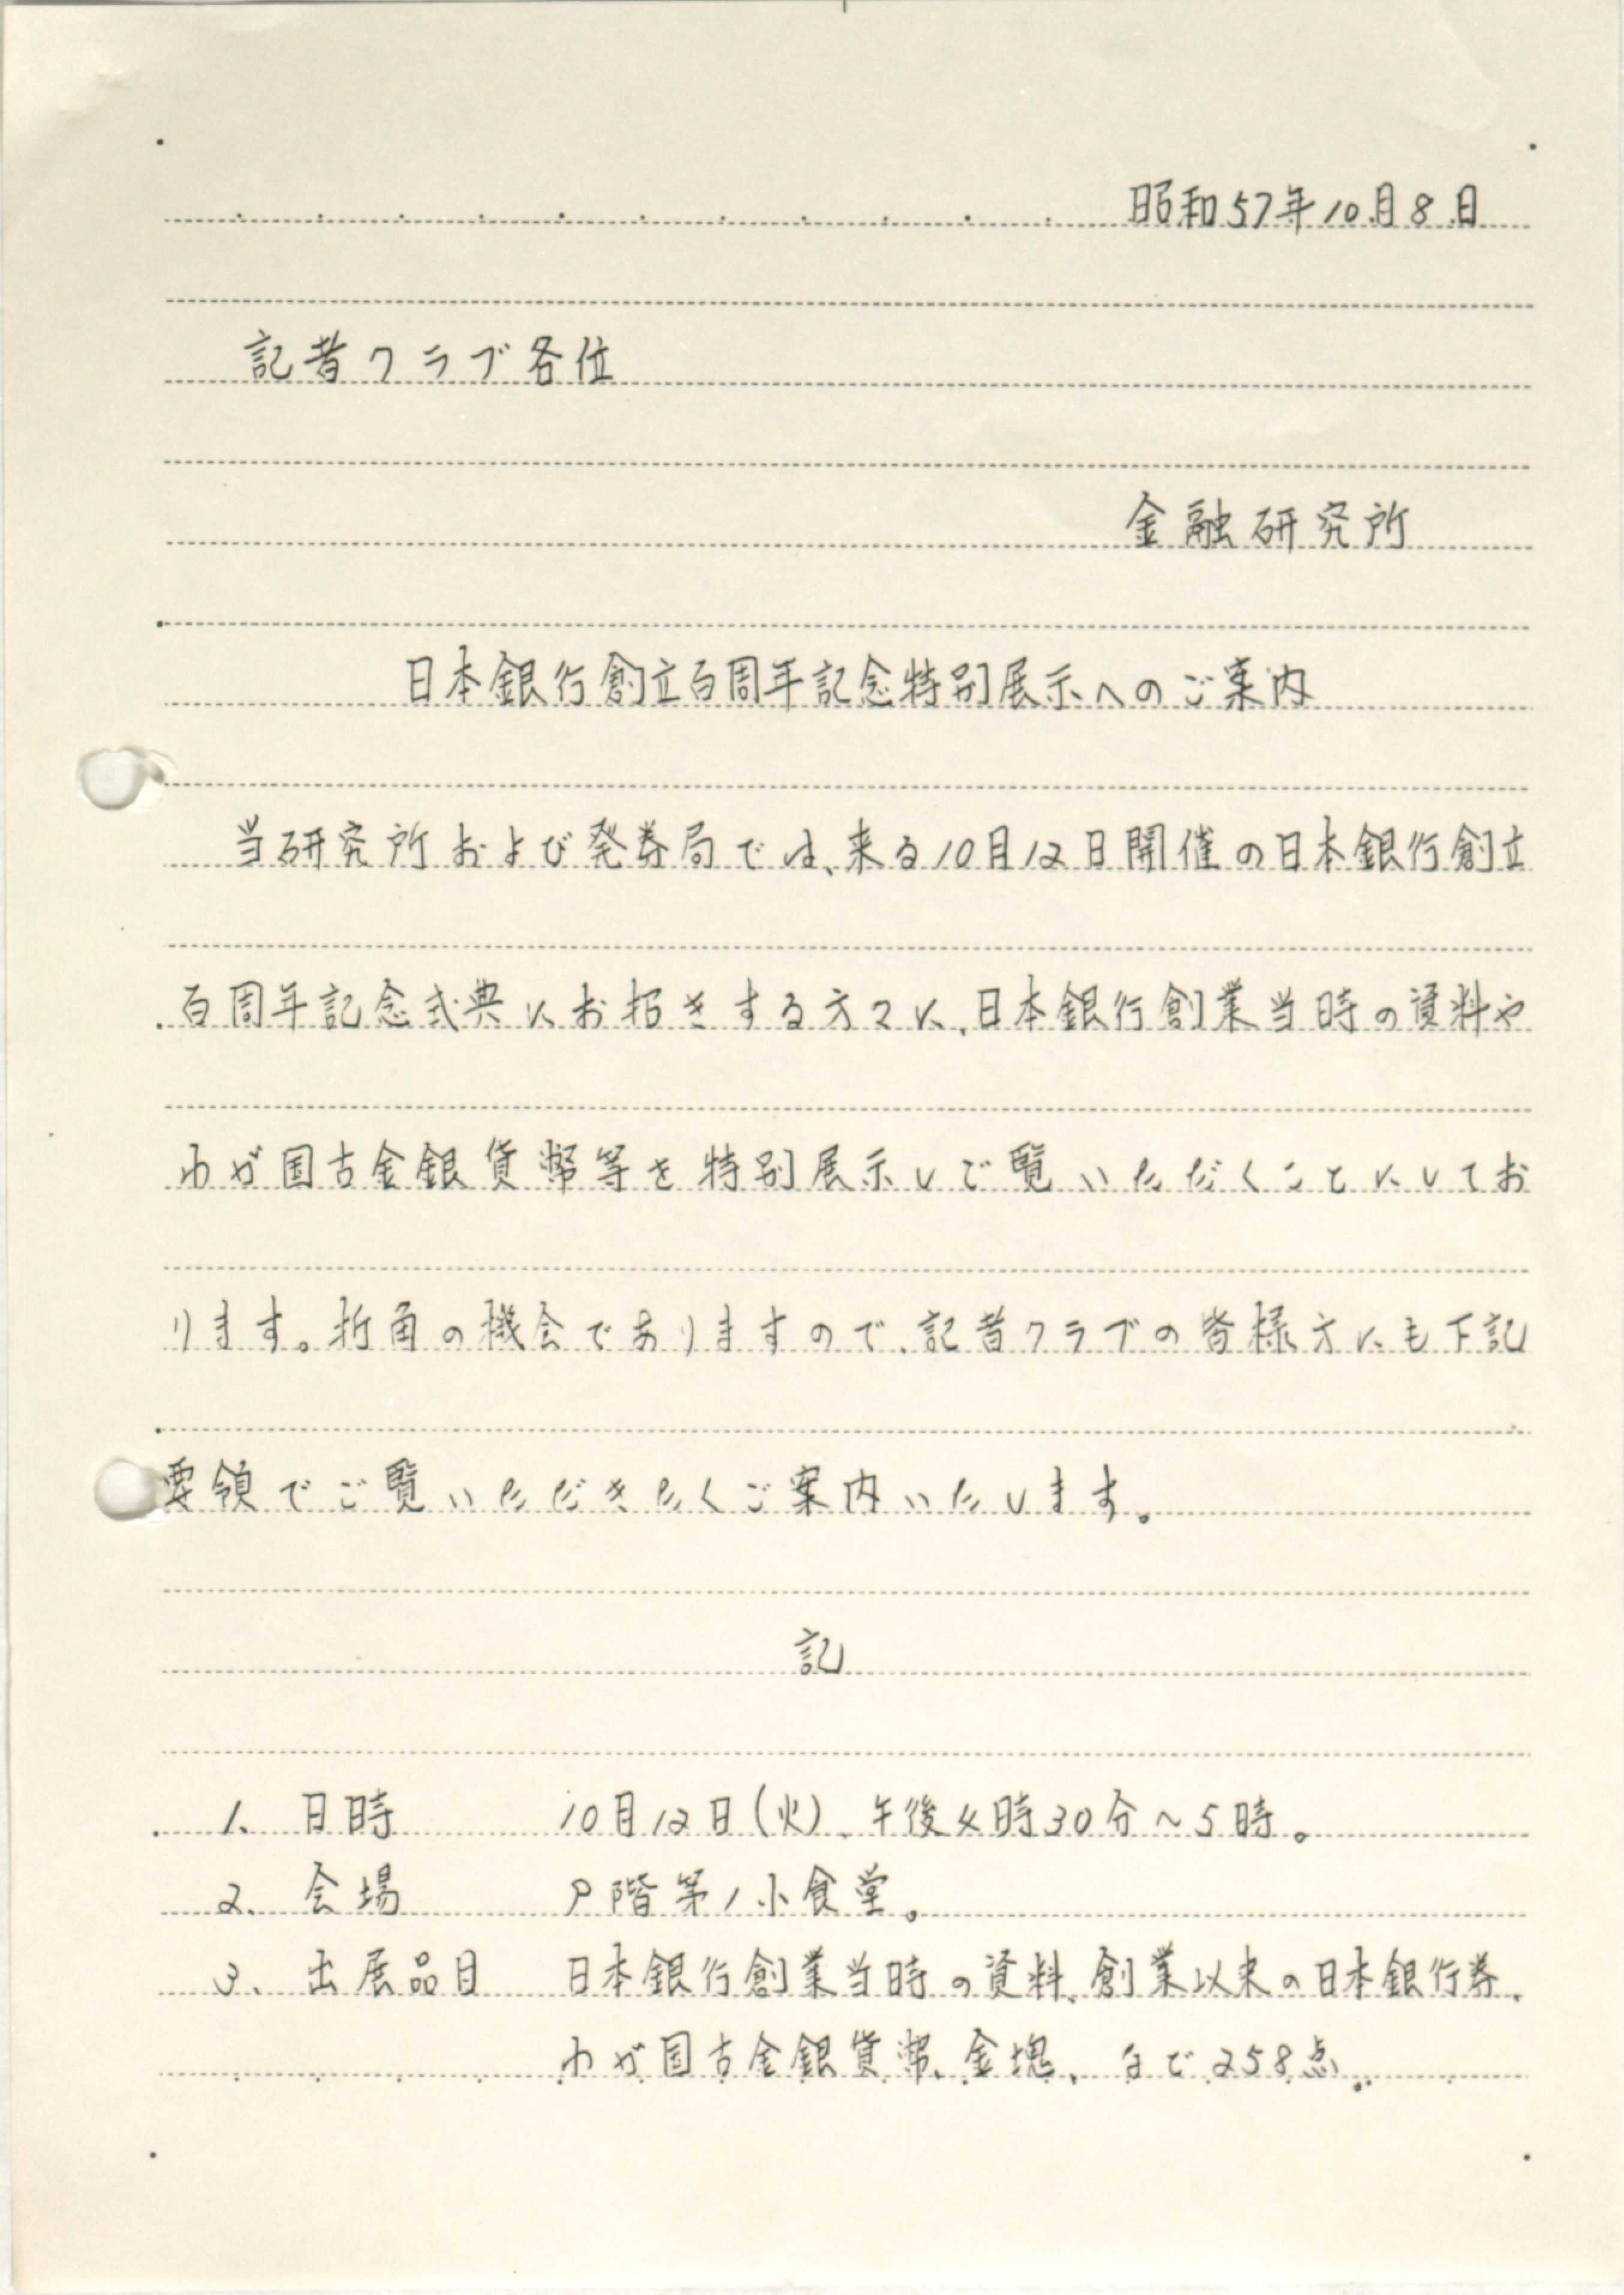 昭和57年10月8日
記者クラブ各位
金融研究所
日本銀行創立百周年記念特別展示へのご案内
当研究所および発券局では、来る10月12日開催の日本銀行創立
百周年記念式典にお招きする方々に、日本銀行創業当時の資料や
わが国古金銀貨幣等を特別展示しご覧いただくことにしてお
ります。折角の機会でありますので、記者クラブの皆様方にも下記
要領でご覧いただきたくご案内いたします。
記
1、日時 10月12日(火)、午後4時30分～5時。
2、会場 階第1小食堂。
3、出展品目 日本銀行創業当時の資料、創業以来の日本銀行券、
わが国古金銀貨幣、金塊、など258点。